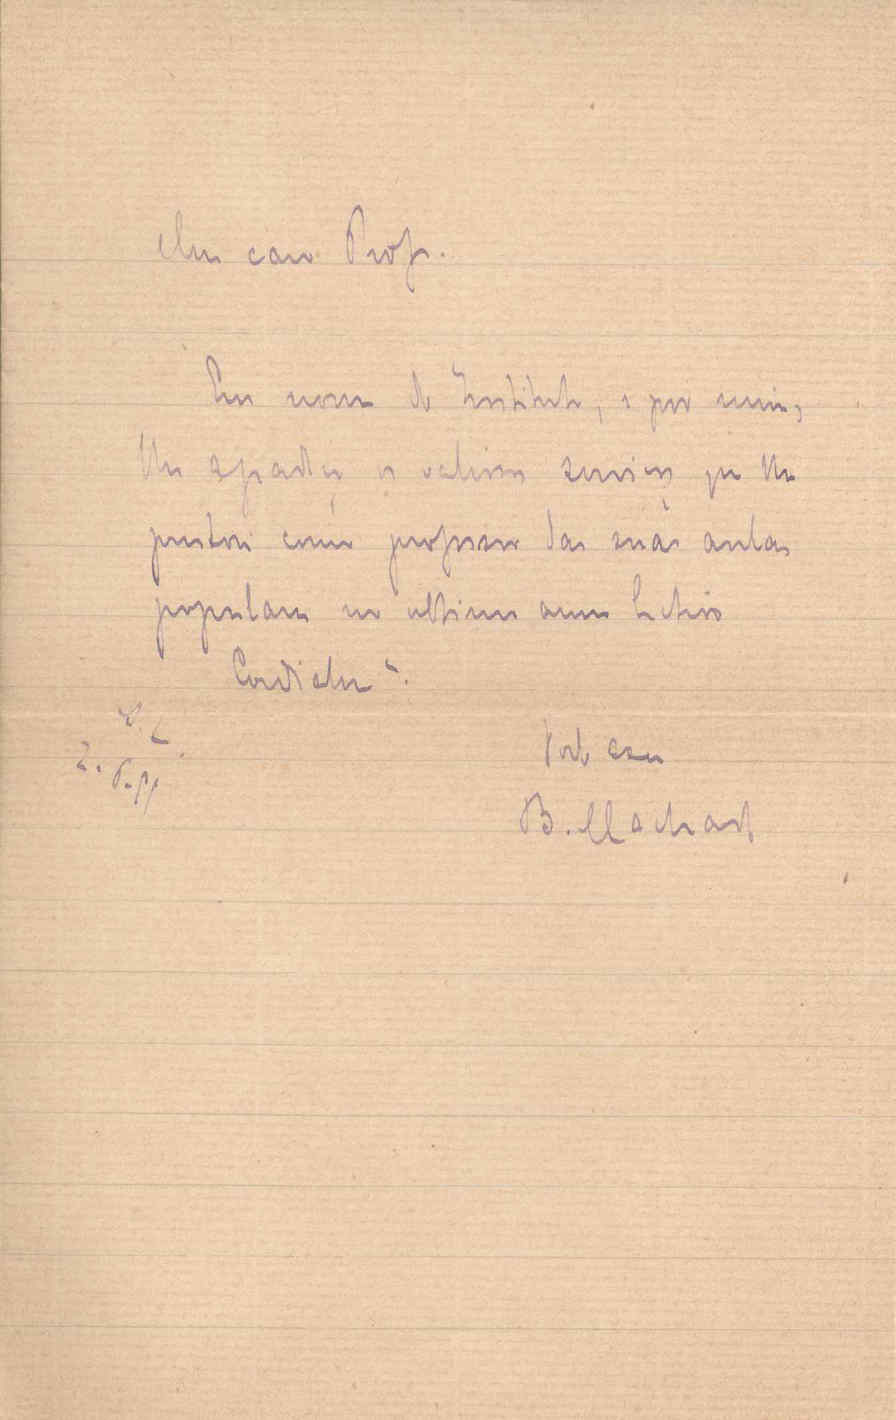 Meu caro Prof.
Em nome do Instituto, e por mim,
lhe agradeço os valiosos serviços que lhe
prestou como professor das suas aulas
populares no ultimo anno lectivo
Cordialm.te
S. C.
Todo seu
B. Machado